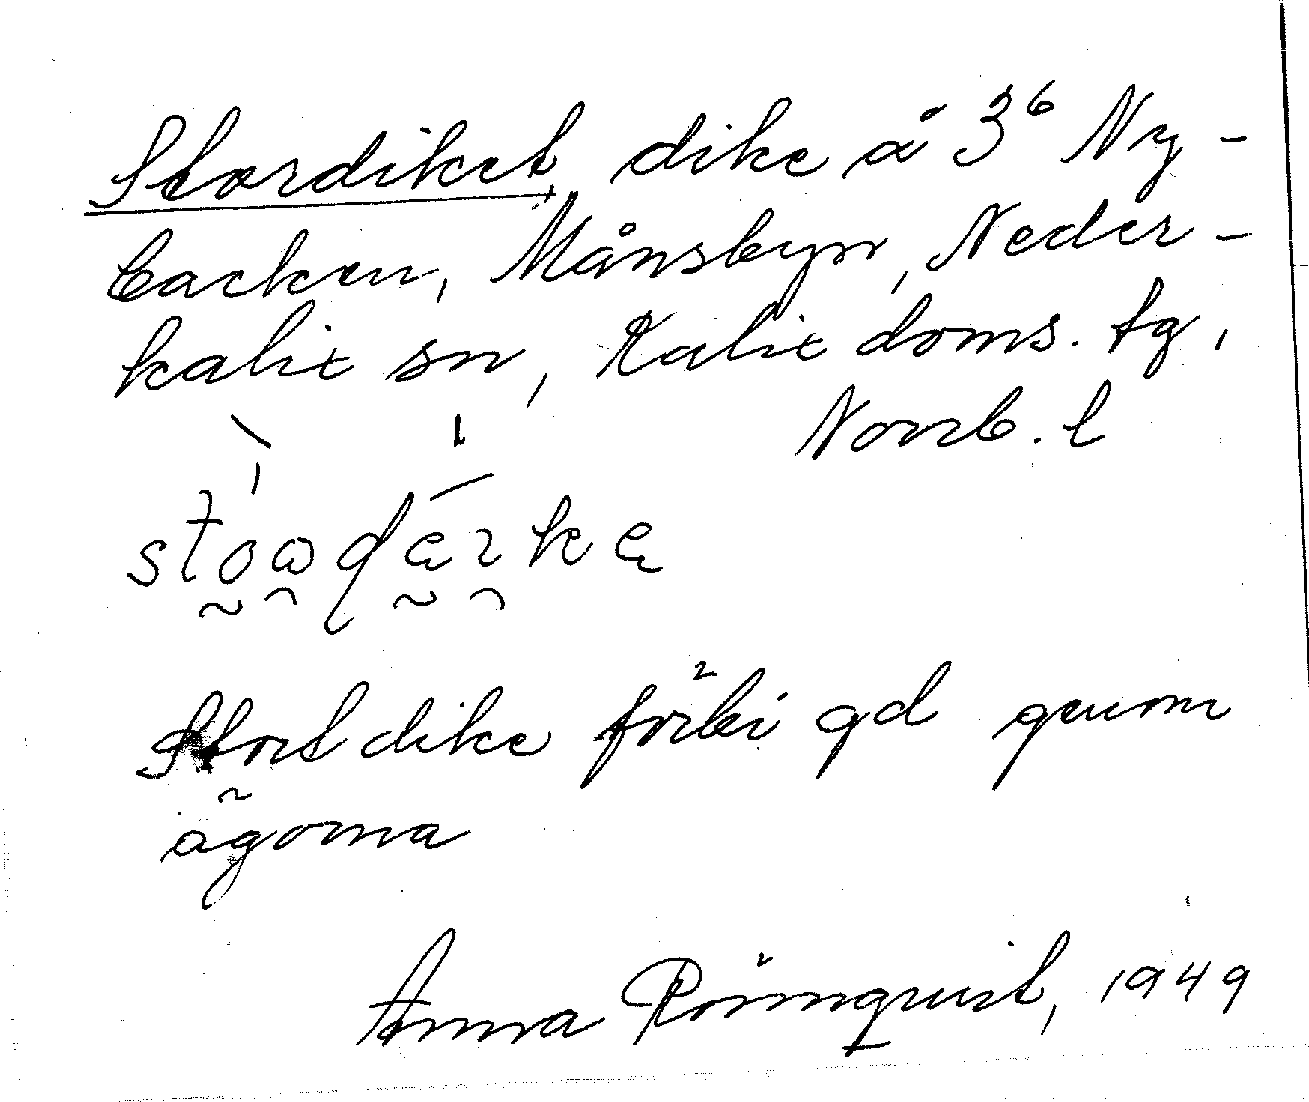 Stordiket, dike å 3⁶ Ny-
backen, Månsbyn, Neder-
kalix sn, Kalix doms. tg,
Norrb. l
Stort dike förbi gd genom
ägorna
Anna Rönnqvist, 1949